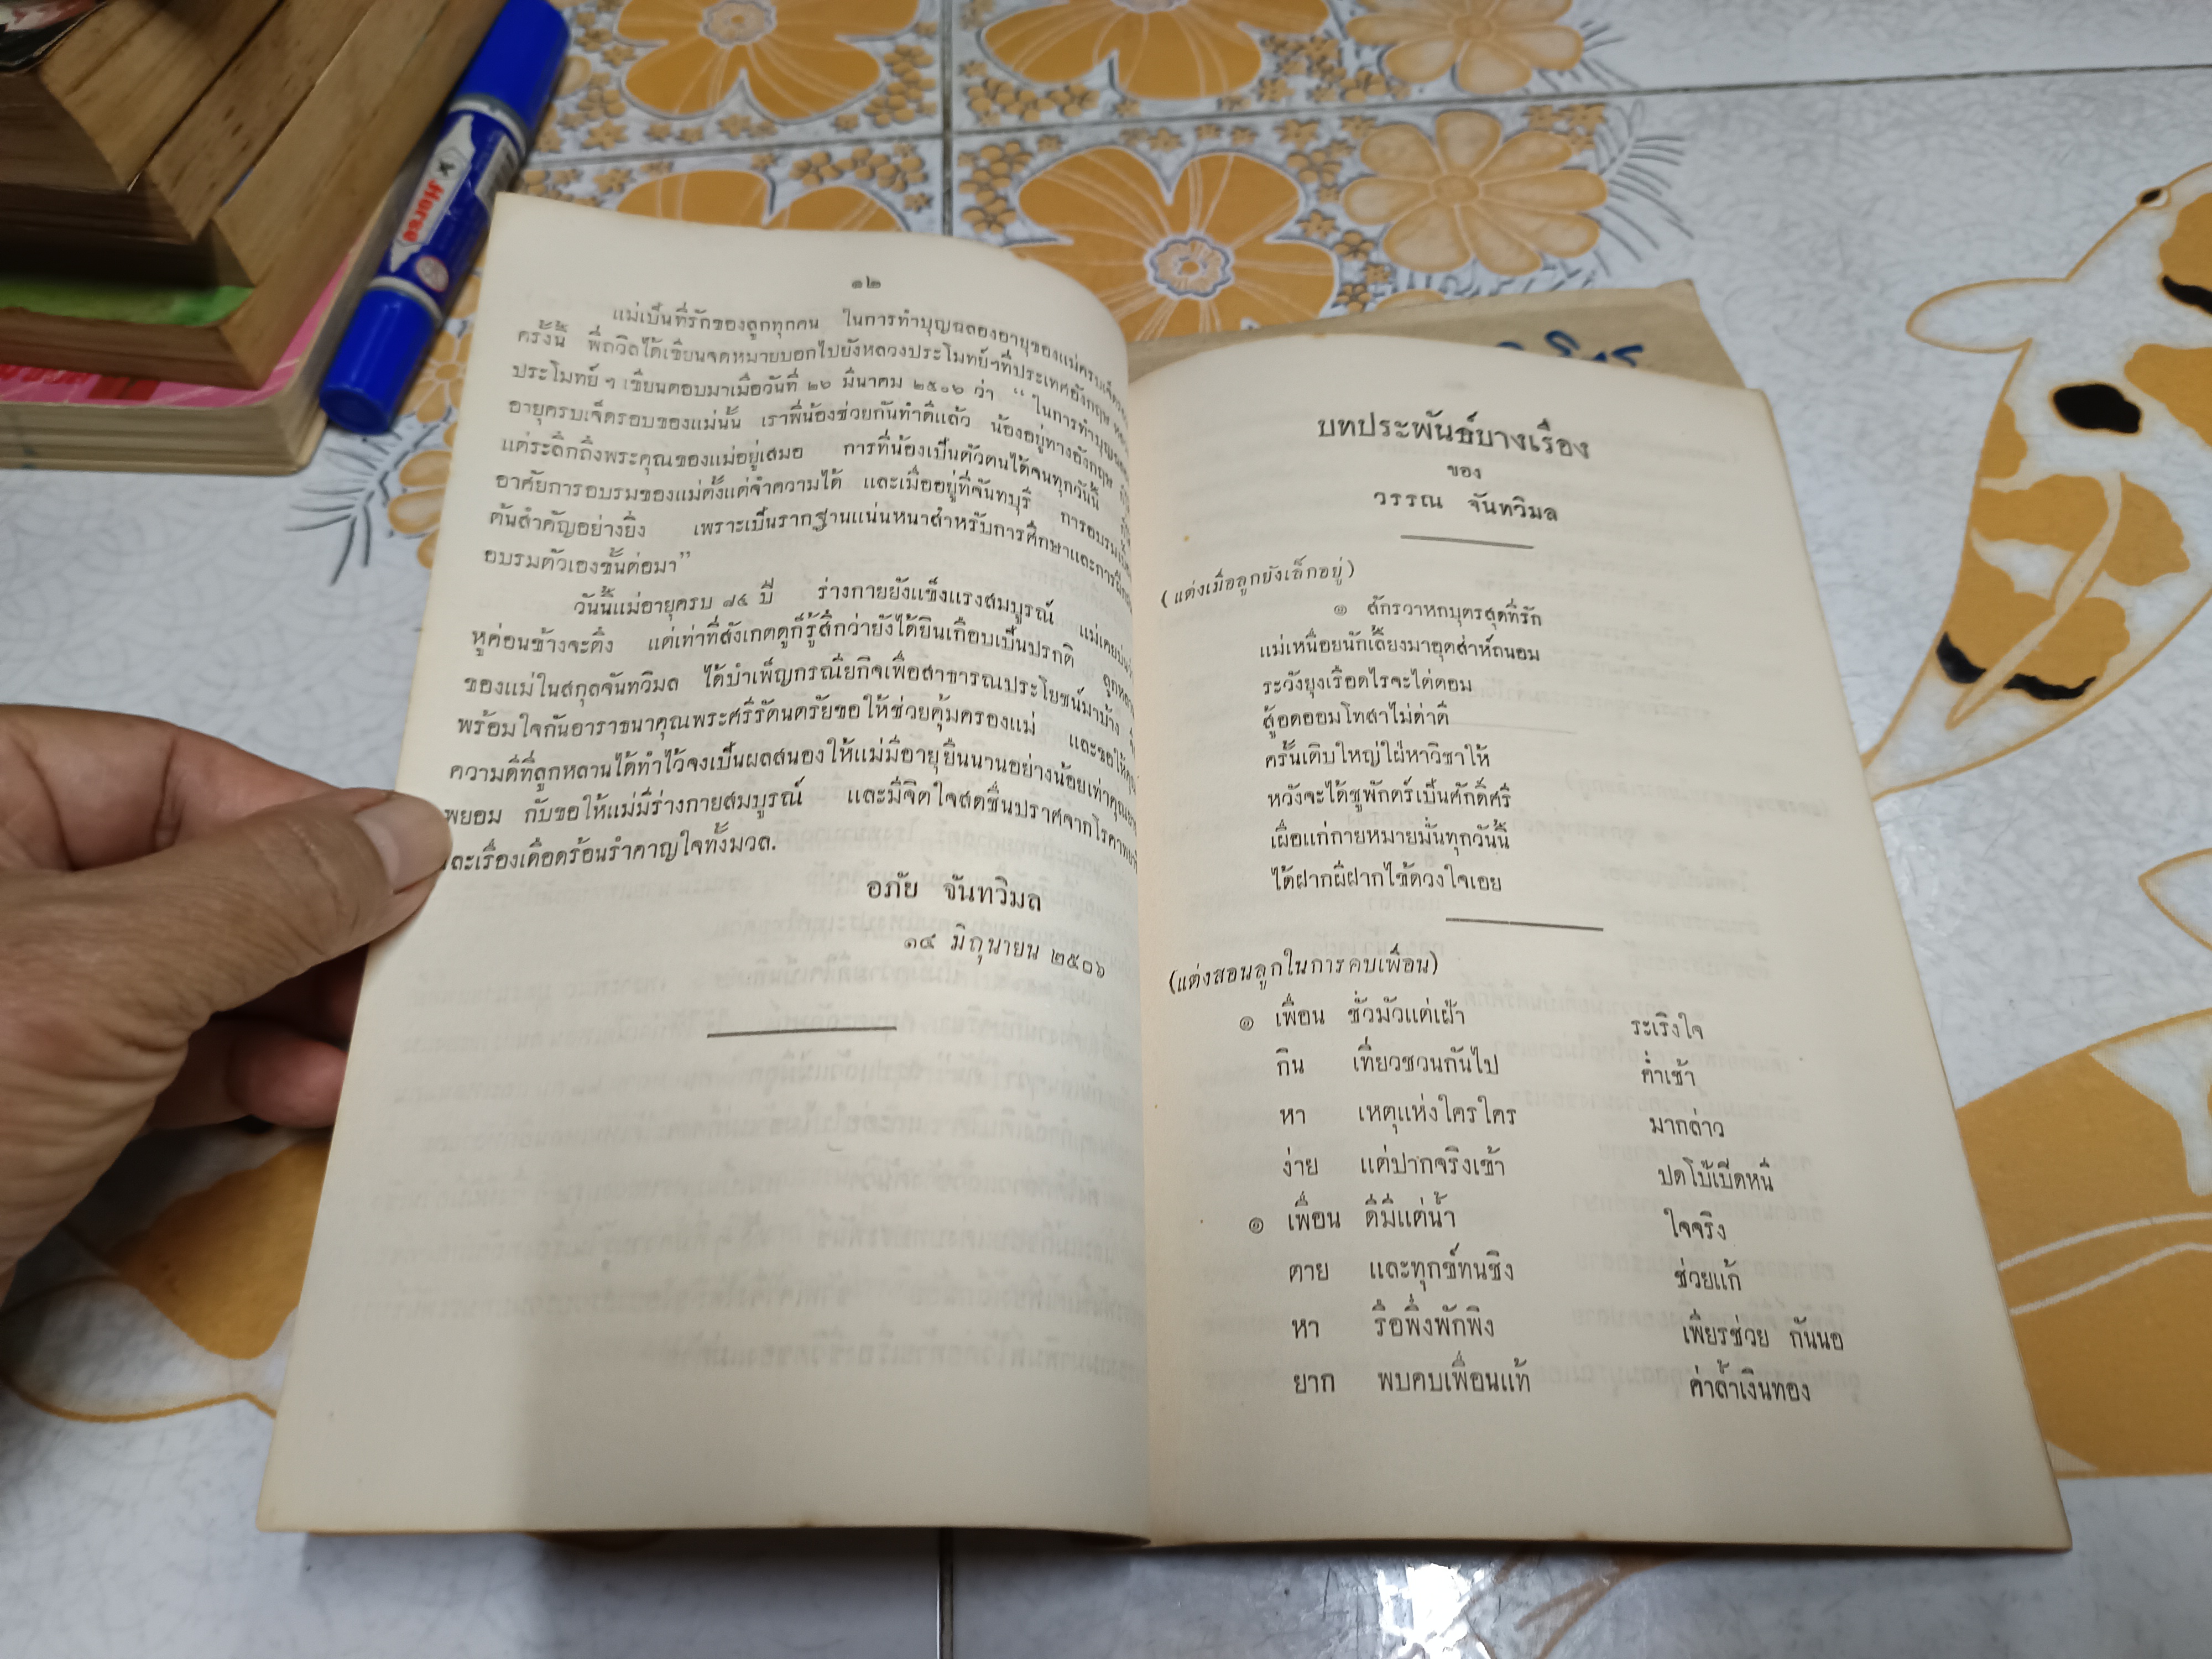 Horse
๑๒
แม่เป็นที่รักของลูกทุกคน ในการทำบุญฉลองอายุของแม่ครบเจ็ดรอบ
ครั้งนี้ พี่ถวิลได้เขียนจดหมายบอกไปยังหลวงประโมทย์ฯที่ประเทศอังกฤษ
ประโมทย์ ฯ เขียนตอบมาเมื่อวันที่ ๒๖ มีนาคม ๒๕๐๖ ว่า “ ในการทำบุญ
อายุครบเจ็ดรอบของแม่นั้น เราพี่น้องช่วยกันทำดีแล้ว น้องอยู่ทางอังกฤษ
แต่ระลึกถึงพระคุณของแม่อยู่เสมอ การที่น้องเป็นตัวตนได้จนทุกวันนี้
อาศัยการอบรมของแม่ตั้งแต่จำความได้ และเมื่ออยู่ที่จันทบุรี การอบรม
ต้นสำคัญอย่างยิ่ง เพราะเป็นรากฐานแน่นหนาสำหรับการศึกษาและการฝึก
อบรมตัวเองขั้นต่อมา”
วันนี้แม่อายุครบ ๘๔ ปี ร่างกายยังแข็งแรงสมบูรณ์ แม่เคยบ่นว่า
หูค่อนข้างจะตึง แต่เท่าที่สังเกตดูก็รู้สึกว่ายังได้ยินเกือบเป็นปรกติ ลูกหลาน
ของแม่ในสกุลจันทวิมล ได้บำเพ็ญกรณียกิจเพื่อสาธารณประโยชน์มาบ้าง
พร้อมใจกันอาราธนาคุณพระศรีรัตนตรัยขอให้ช่วยคุ้มครองแม่ และขอให้คุณ
ความดีที่ลูกหลานได้ทำไว้จงเป็นผลสนองให้แม่มีอายุยืนนานอย่างน้อยเท่าคุณยาย
พยอม กับขอให้แม่มีร่างกายสมบูรณ์ และมีจิตใจสดชื่นปราศจากโรคาพยาธิ
และเรื่องเดือดร้อนรำคาญใจทั้งมวล.
อภัย จันทวิมล
๑๔ มิถุนายน ๒๕๐๖
บทประพันธ์บางเรื่อง
ของ
วรรณ จันทวิมล
(แต่งเมื่อลูกยังเล็กอยู่)
๏ สักรวาหกบุตรสุดที่รัก
แม่เหนื่อยนักเลี้ยงมาอุตส่าห์ถนอม
ระวังยุงเรือดไรจะไต่ตอม
สู้อดออมโทสาไม่ด่าตี
ครั้นเติบใหญ่ใฝ่หาวิชาให้
หวังจะได้ชูพักตร์เป็นศักดิ์ศรี
เผื่อแก่กายหมายมั่นทุกวันนี้
ได้ฝากผีฝากไข้ดวงใจเอย
(แต่งสอนลูกในการคบเพื่อน)
๏ เพื่อน ชั่วมัวแต่เฝ้า ระเริงใจ
กิน เที่ยวชวนกันไป ค่ำเช้า
หา เหตุแห่งใครใคร มากล่าว
ง่าย แต่ปากจริงเข้า ปดโป้เบีดหนี
๏ เพื่อน ดีมีแต่น้ำ ใจจริง
ตาย และทุกข์ทนชิง ช่วยแก้
หา รือพึ่งพักพิง เพียรช่วย กันนอ
ยาก พบคบเพื่อนแท้ ค่าล้ำเงินทอง